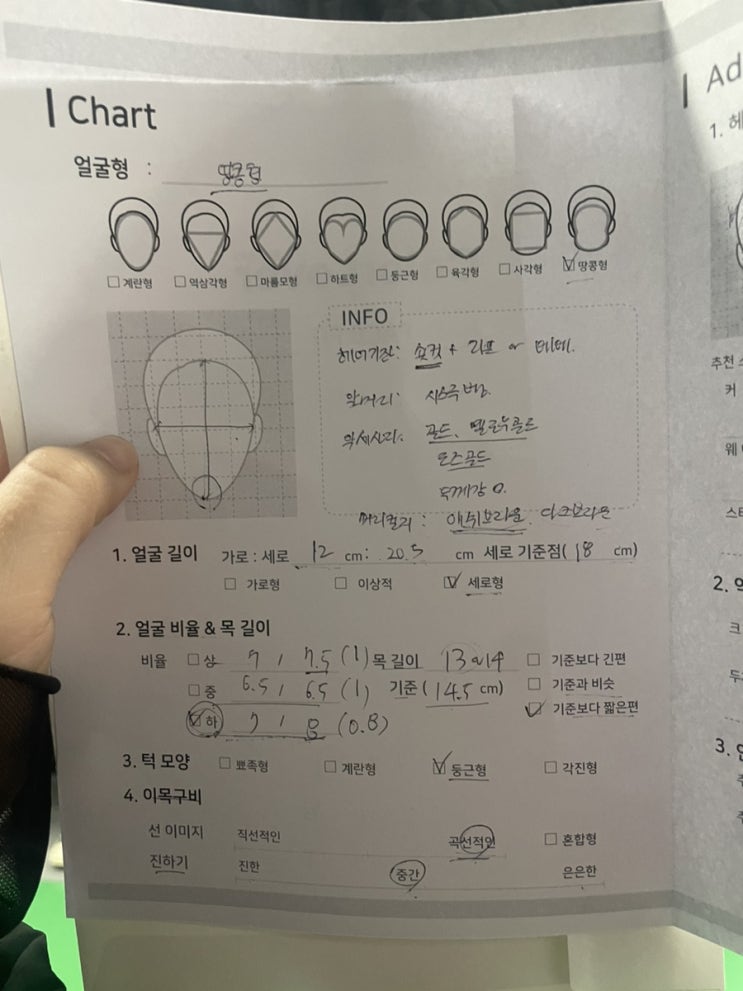 Chart
Ad
1. 헤
얼굴형 : 땅콩형
□ 계란형 □ 역삼각형 □ 마름모형 □ 하트형 □ 둥근형 □ 육각형 □ 사각형 ☑ 땅콩형
INFO
헤어기장: 숏컷 + 리프 or 댄디.
앞머리: 시스루 뱅.
악세사리: 골드, 옐로우골드
로즈골드
두께감 O.
머리컬러 : 애쉬브라운. 다크브라운
추천 스
커
웨
스타
1. 얼굴 길이 가로 : 세로 12 cm : 20.5 cm 세로 기준점( 18 cm)
□ 가로형 □ 이상적 ☑ 세로형
2. 얼굴 비율 & 목 길이
비율 □ 상 7 / 7.5 (1) 목 길이 13~14 □ 기준보다 긴편
□ 중 6.5 / 6.5 (1) 기준 ( 14.5 cm) □ 기준과 비슷
☑ 하 7 / 8 (0.8) ☑ 기준보다 짧은편
3. 턱 모양 □ 뾰족형 □ 계란형 ☑ 둥근형 □ 각진형
4. 이목구비
선 이미지 직선적인 곡선적인 □ 혼합형
진하기 진한 중간 은은한
2.
크
두
3.